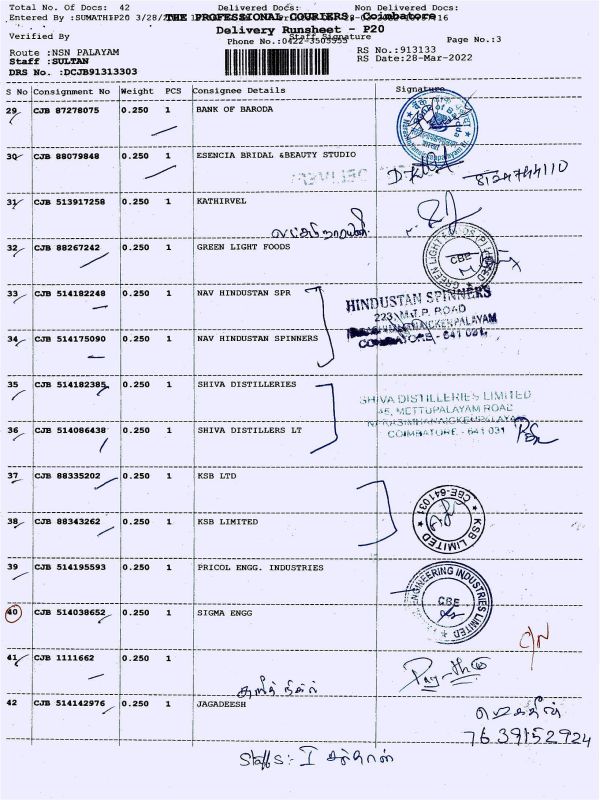 Total No. Of Docs: 42 Delivered Docs: Non Delivered Docs:
Entered By :SUMATHIP20 3/28/2022
THE PROFESSIONAL COURIERS - Coimbatore
Delivery Runsheet - P20
Verified By Staff Signature
Phone No.:0422-3503555 Page No.:3
Route :NSN PALAYAM RS No.:913133
Staff :SULTAN RS Date:28-Mar-2022
DRS No. :DCJB91313303
S No Consignment No Weight PCS Consignee Details Signature
29 CJB 87278075 0.250 1 BANK OF BARODA
30 CJB 88079848 0.250 1 ESENCIA BRIDAL &BEAUTY STUDIO
8124744110
31 CJB 513917258 0.250 1 KATHIRVEL
32 CJB 88267242 0.250 1 GREEN LIGHT FOODS
33 CJB 514182248 0.250 1 NAV HINDUSTAN SPR
HINDUSTAN SPINNERS
223, M.T.P. ROAD
COIMBATORE - 641 031.
34 CJB 514175090 0.250 1 NAV HINDUSTAN SPINNERS
35 CJB 514182385 0.250 1 SHIVA DISTILLERIES
SHIVA DISTILLERIES LIMITED
45, METTUPALAYAM ROAD
COIMBATORE - 641 031
36 CJB 514086438 0.250 1 SHIVA DISTILLERS LT
37 CJB 88335202 0.250 1 KSB LTD
CBE-641031
KSB LIMITED
38 CJB 88343262 0.250 1 KSB LIMITED
39 CJB 514195593 0.250 1 PRICOL ENGG. INDUSTRIES
ENGINEERING INDUSTRIES LIMITED
CBE
40 CJB 514038652 0.250 1 SIGMA ENGG
C/N
41 CJB 1111662 0.250 1
42 CJB 514142976 0.250 1 JAGADEESH
7639152924
Staffs: I சுல்தான்